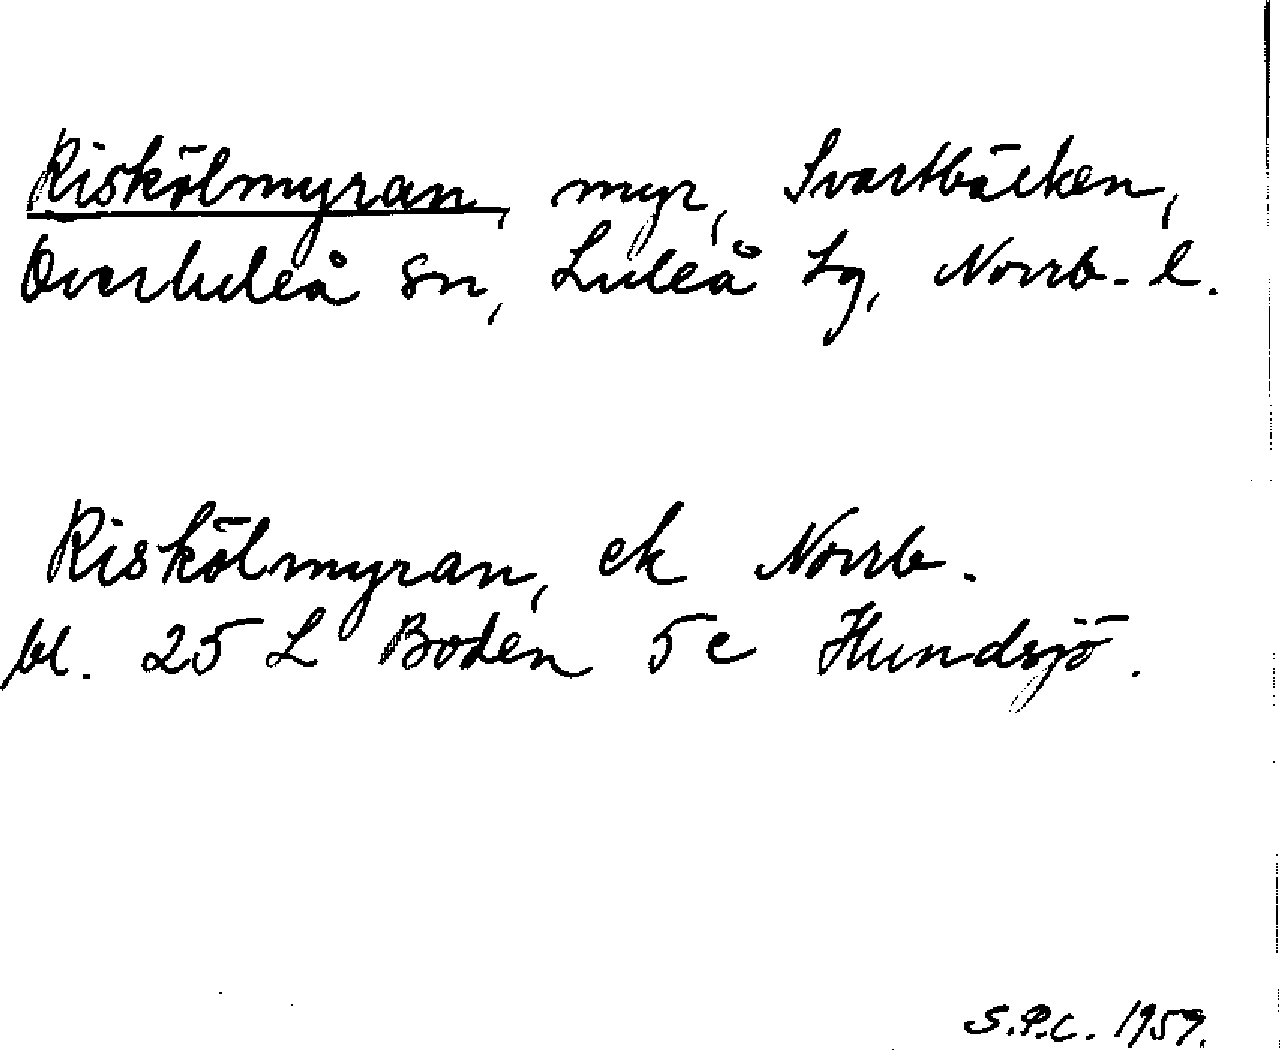 Riskölmyran, myr, Svartbäcken,
Överluleå sn, Luleå tg, Norrb. l.
Riskölmyran, ek Norrb.
bl. 25 L Boden 5 c Hundsjö.
S.P.C. 1959.